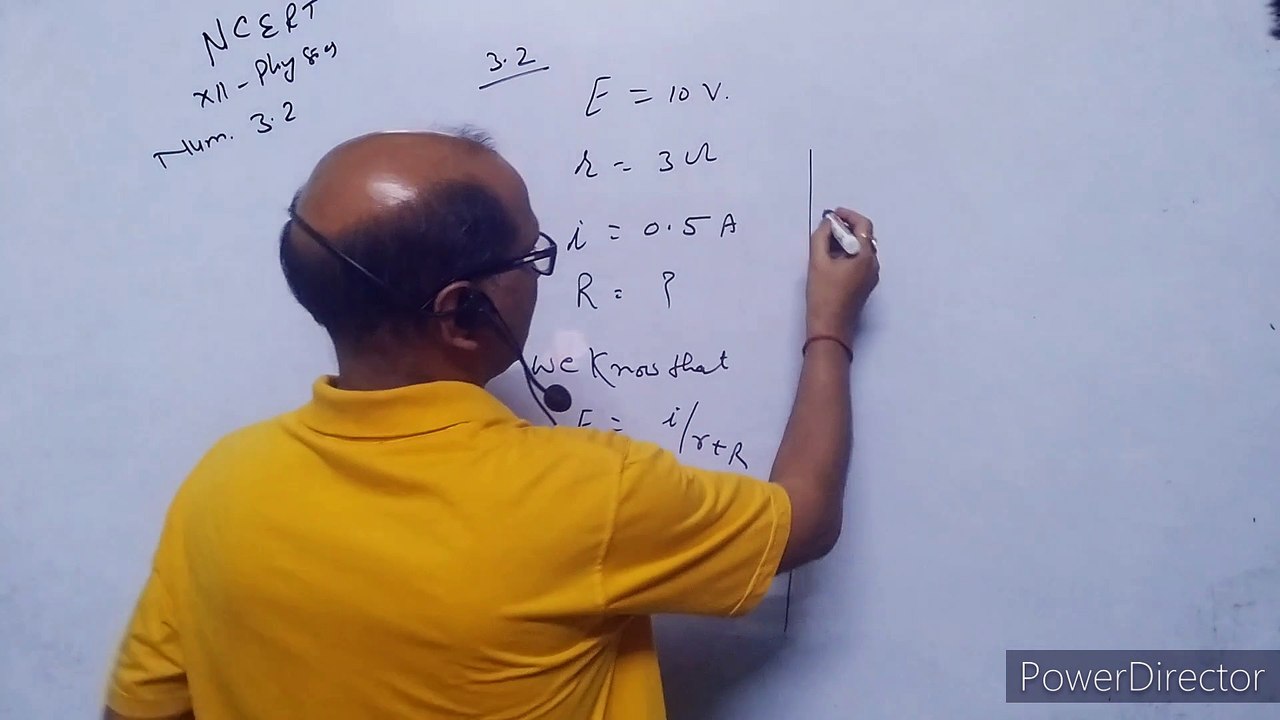 NCERT
XII - Physics
Num. 3.2
3.2
E = 10 V.
r = 3 Ω
i = 0.5 A
R = ?
we know that
E = i/r+R
PowerDirector